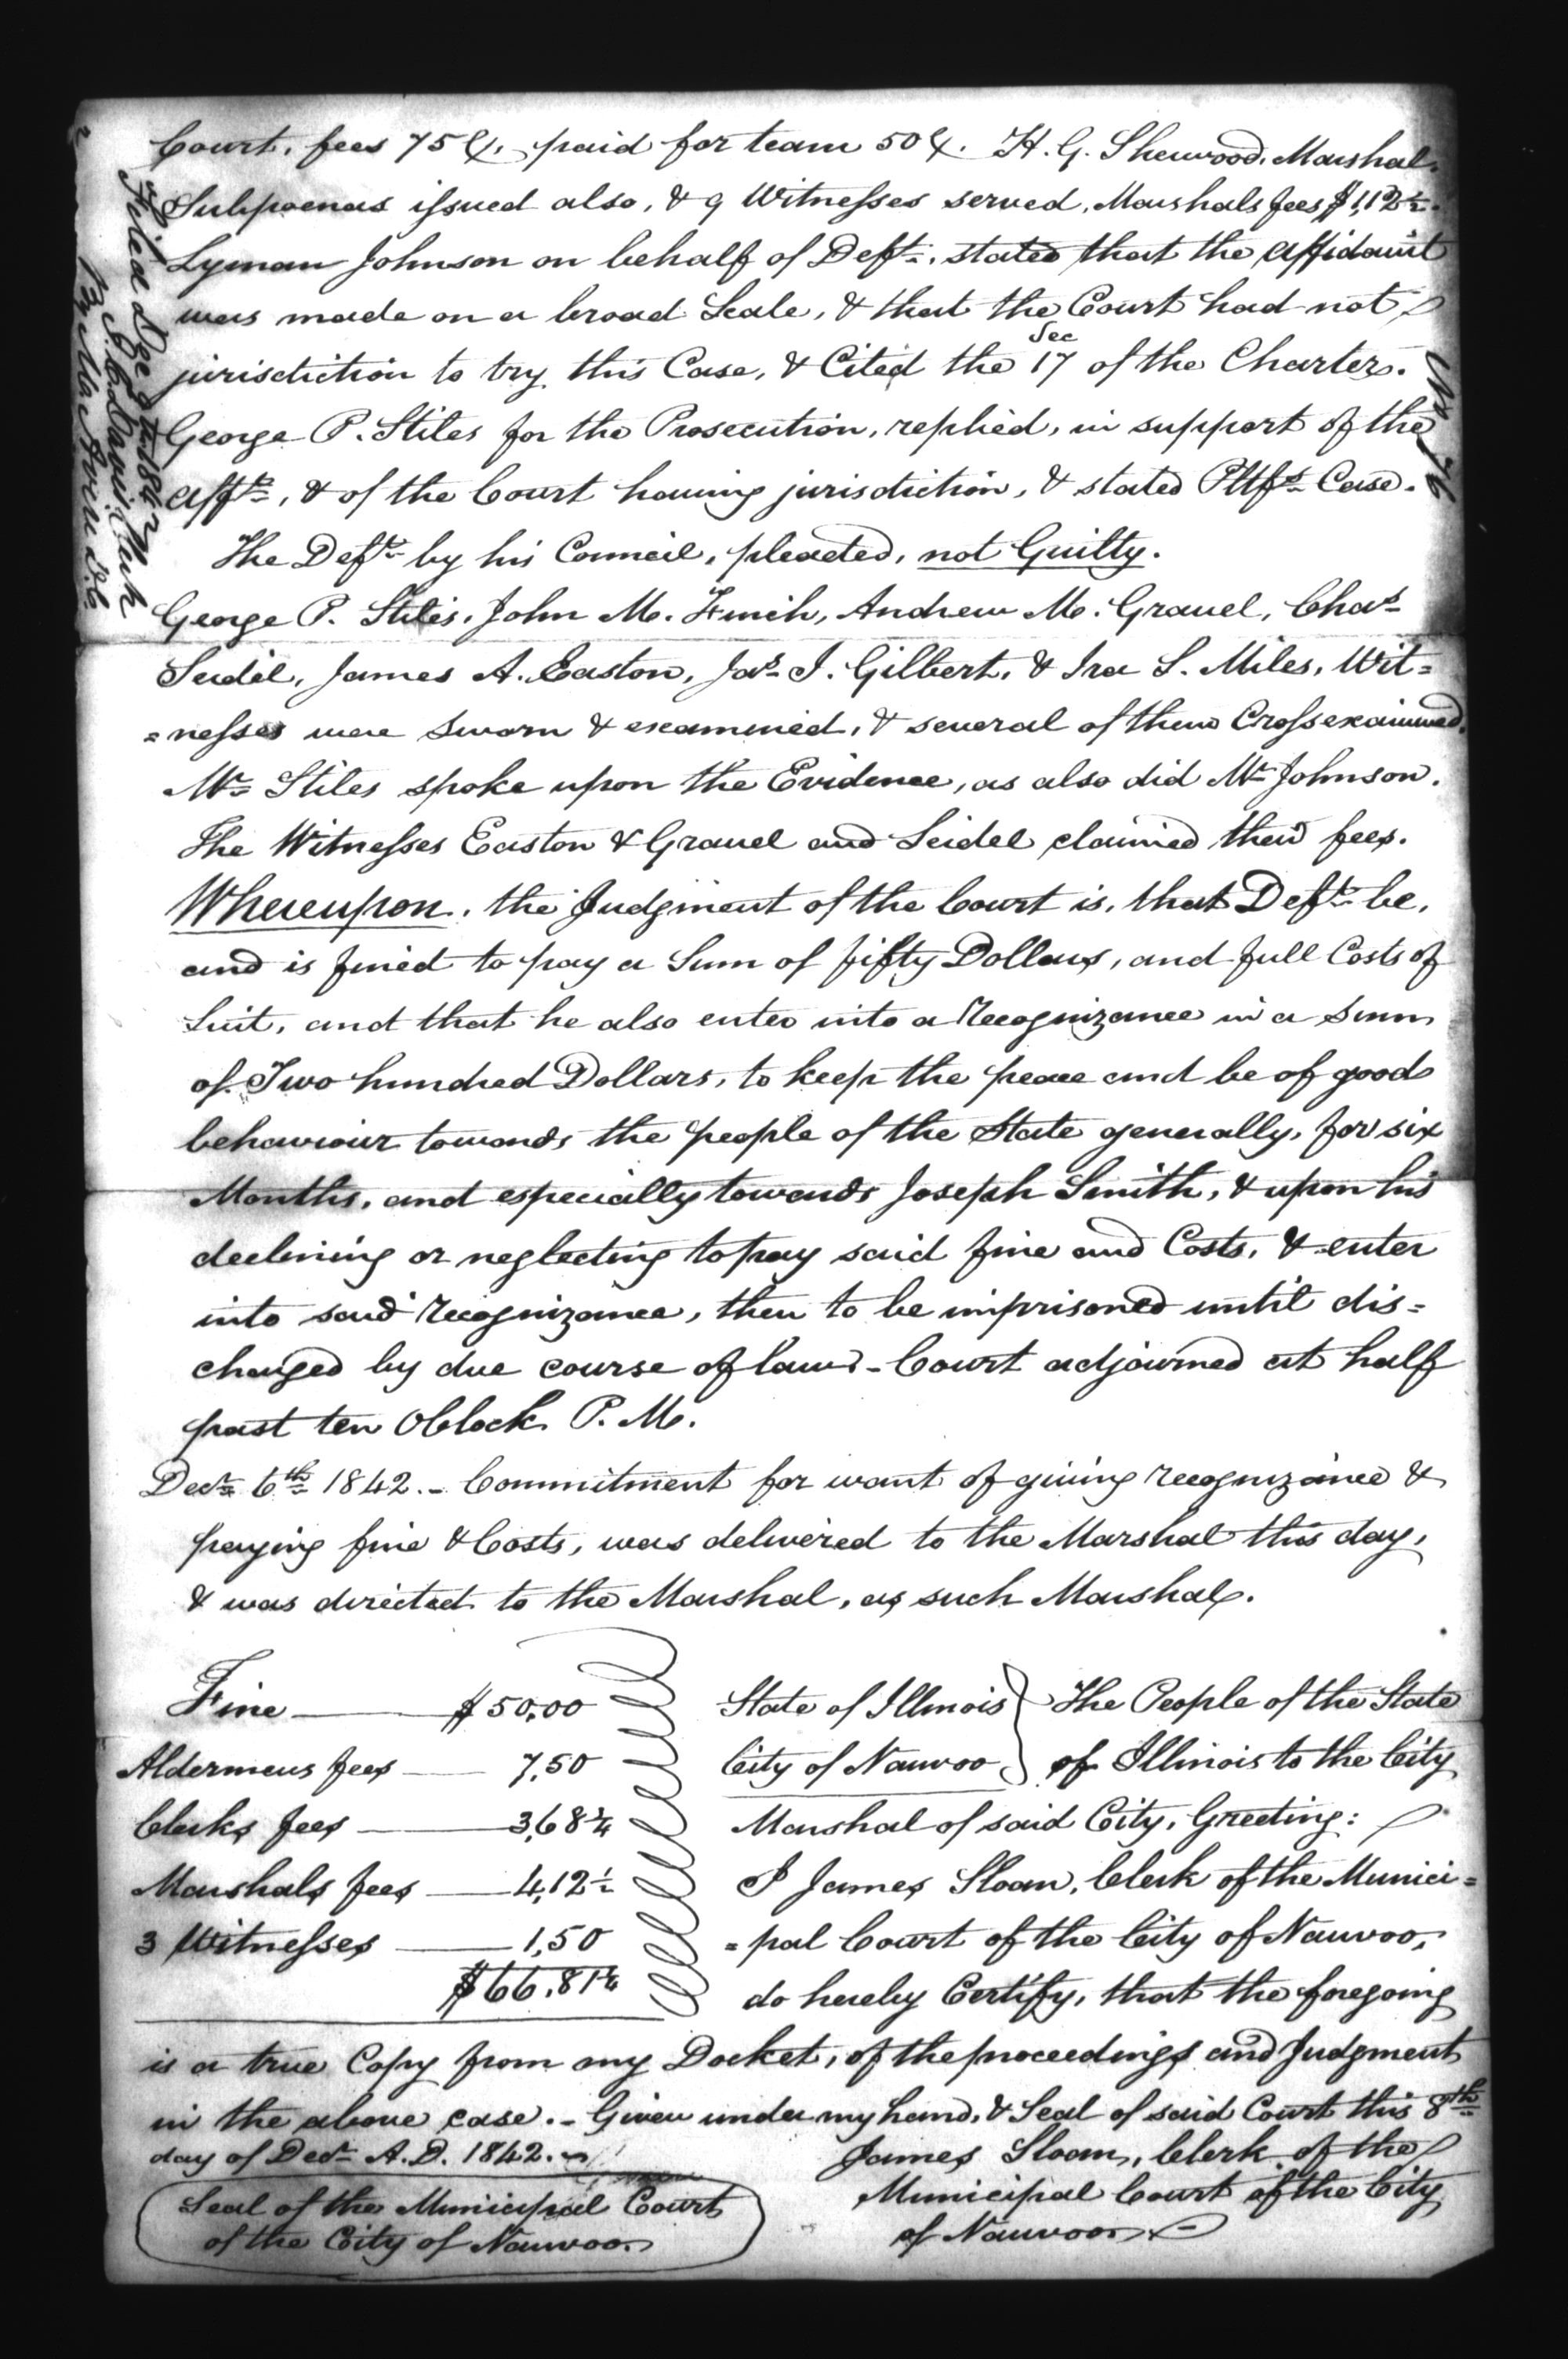 Court. fees 75 ₵. paid for team 50 ₵. H. G. Sherwood. Marshal.
Subpoenas issued also, & 9 Witnesses served, Marshals fees $1,12½.
Lyman Johnson on behalf of Deft., stated that the affidavit
was made on a broad Scale, & that the Court had not
Sec
jurisdiction to try this Case, & Cited the 17 of the Charter.
George P. Stiles for the Prosecution, replied, in support of the
Afft, & of the Court having jurisdiction, & stated Pltfs Case.
The Deft by his Council, pleaded, not Guilty.
George P. Stiles, John M. Finch, Andrew M. Gravel, Chas
Seidel, James A. Easton, Jas I. Gilbert, & Ira S. Miles, Wit=
=nesses were Sworn & examined, & several of them Crossexamined.
Mr Stiles spoke upon the Evidence, as also did Mr Johnson.
The Witnesses Easton & Gravel and Seidel claimed their fees.
Whereupon, the Judgment of the Court is, that Deft be,
and is fined to pay a Sum of fifty Dollars, and full Costs of
Suit, and that he also enter into a Recognizance in a Sum
of Two hundred Dollars, to keep the peace and be of good
behaviour towards the people of the State generally, for six
Months, and especially towards Joseph Smith, & upon his
declining or neglecting to pay said fine and Costs, & enter
into said Recognizance, then to be imprisoned until dis=
charged by due course of law. - Court adjourned at half
past ten OClock P. M.
Decr 6th 1842. - Commitment for want of giving recognizance &
paying fine & Costs, was delivered to the Marshal this day,
& was directed to the Marshal, as such Marshal.
Fine $50,00
Aldermens fees 7,50
Clerks fees 3,68¾
Marshals fees 4,12½
3 Witnesses 1,50
$66.81¼
State of Illinois } The People of the State
City of Nauvoo } of Illinois to the City
Marshal of said City, Greeting:
I James Sloan, Clerk of the Munici=
=pal Court of the City of Nauvoo,
do hereby Certify, that the foregoing
is a true Copy from my Docket, of the proceedings and Judgment
in the above case. - Given under my hand, & Seal of said Court this 8th
day of Decr A.D. 1842.
James Sloan, Clerk of the
Municipal Court of the City
of Nauvoo
Seal of the Municipal Court
of the City of Nauvoo
Filed Dec 9th 1842
J. B. Davis Clerk
By